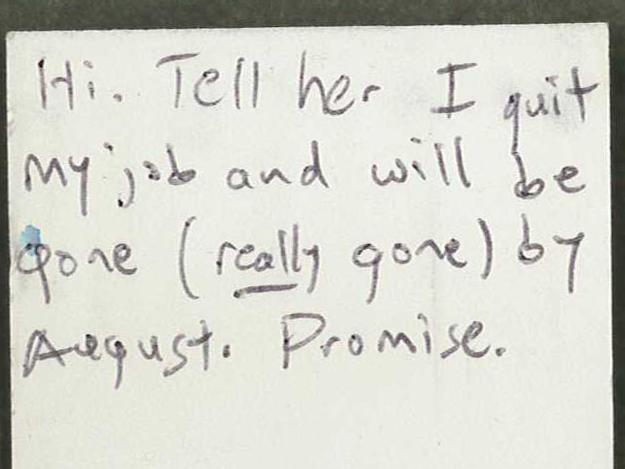 Hi. Tell her I quit
my job and will be
gone (really gone) by
August. Promise.